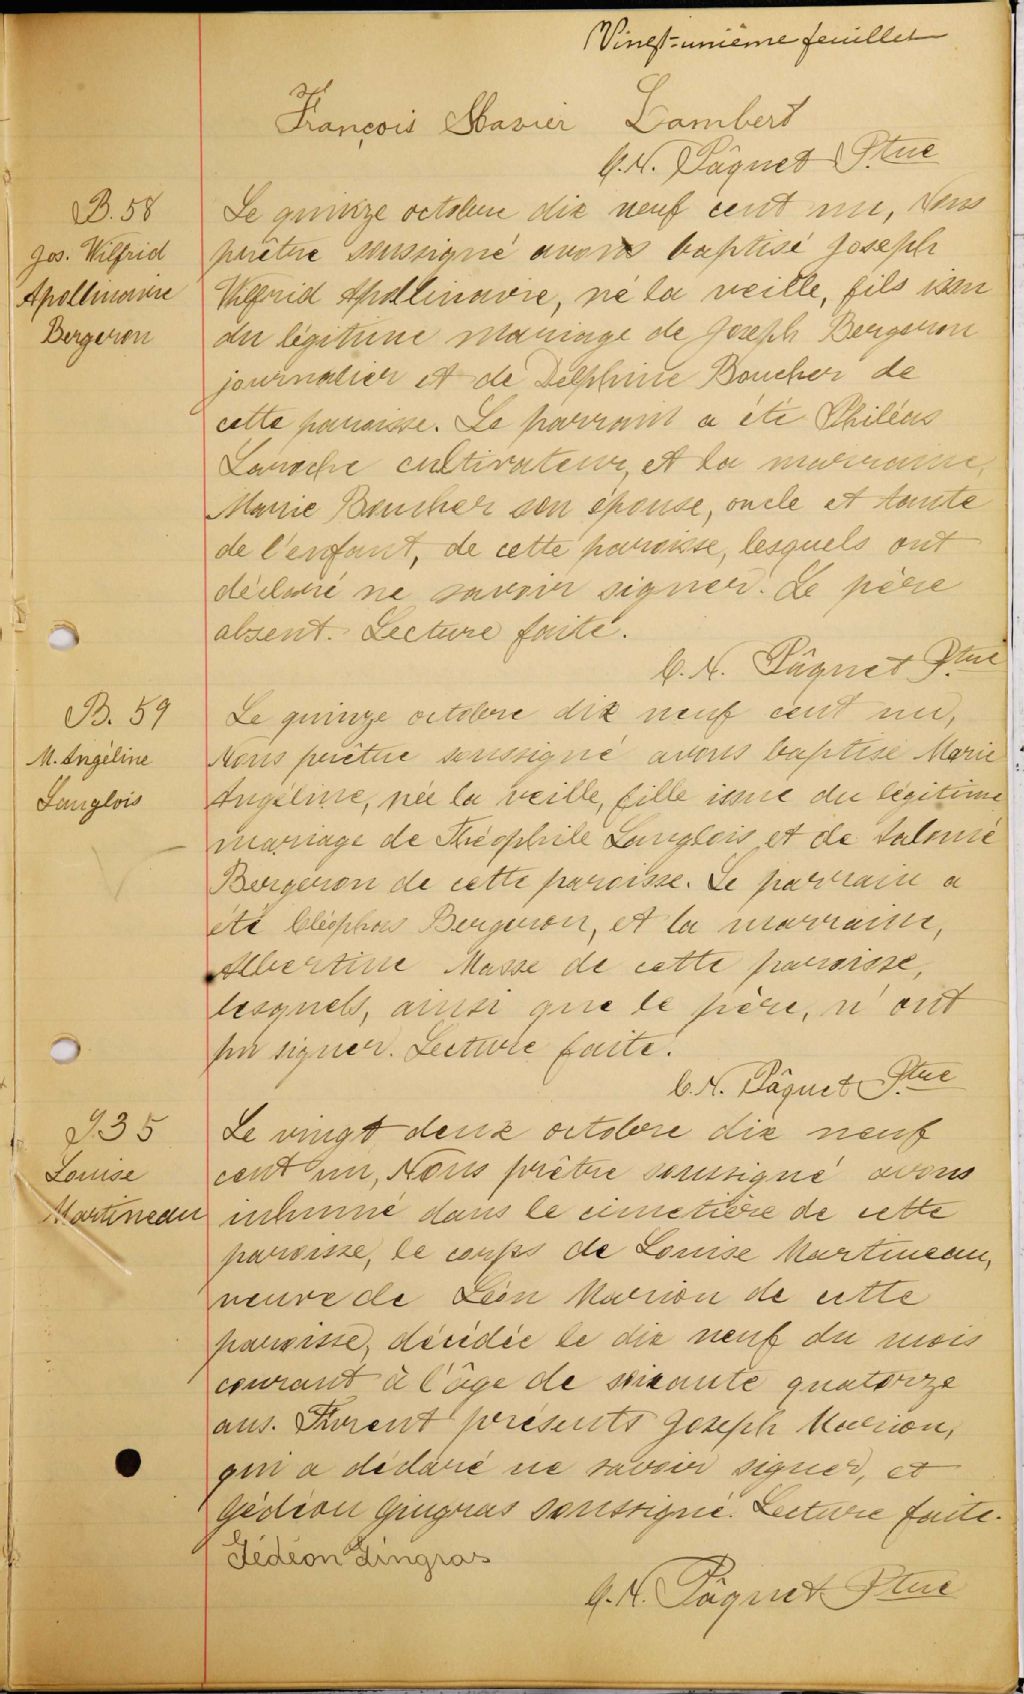 Vingt-unième feuillet
François Xavier Lambert
C.N. Pâquet Ptre
B. 58
Jos. Wilfrid
Apollinaire
Bergeron
Le quinze octobre dix neuf cent un, Nous
prêtre soussigné avons baptisé Joseph
Wilfrid Apollinaire, né la veille, fils issu
du légitime mariage de Joseph Bergeron
journalier et de Delphine Boucher de
cette paroisse. Le parrain a été Philéas
Laroche cultivateur, et la marraine,
Marie Boucher son épouse, oncle et tante
de l'enfant, de cette paroisse, lesquels ont
déclaré ne savoir signer. Le père
absent. Lecture faite.
C. N. Pâquet Ptre
B. 59
M. Angéline
Langlois
Le quinze octobre dix neuf cent un,
Nous prêtre soussigné avons baptisé Marie
Angéline, née la veille, fille issue du légitime
mariage de Théophile Langlois et de Salomé
Bergeron de cette paroisse. Le parrain a
été Cléophas Bergeron, et la marraine,
Albertine Masse de cette paroisse,
lesquels, ainsi que le père, n'ont
pu signer. Lecture faite.
C. N. Pâquet Ptre
S. 35
Louise
Martineau
Le vingt deux octobre dix neuf
cent un, Nous prêtre soussigné avons
inhumé dans le cimetière de cette
paroisse, le corps de Louise Martineau,
veuve de Léon Marion de cette
paroisse, décédée le dix neuf du mois
courant à l'âge de soixante quatorze
ans. Furent présents Joseph Marion,
qui a déclaré ne savoir signer, et
Gédéon Gingras soussigné. Lecture faite.
Gédéon Gingras
C. N. Pâquet Ptre